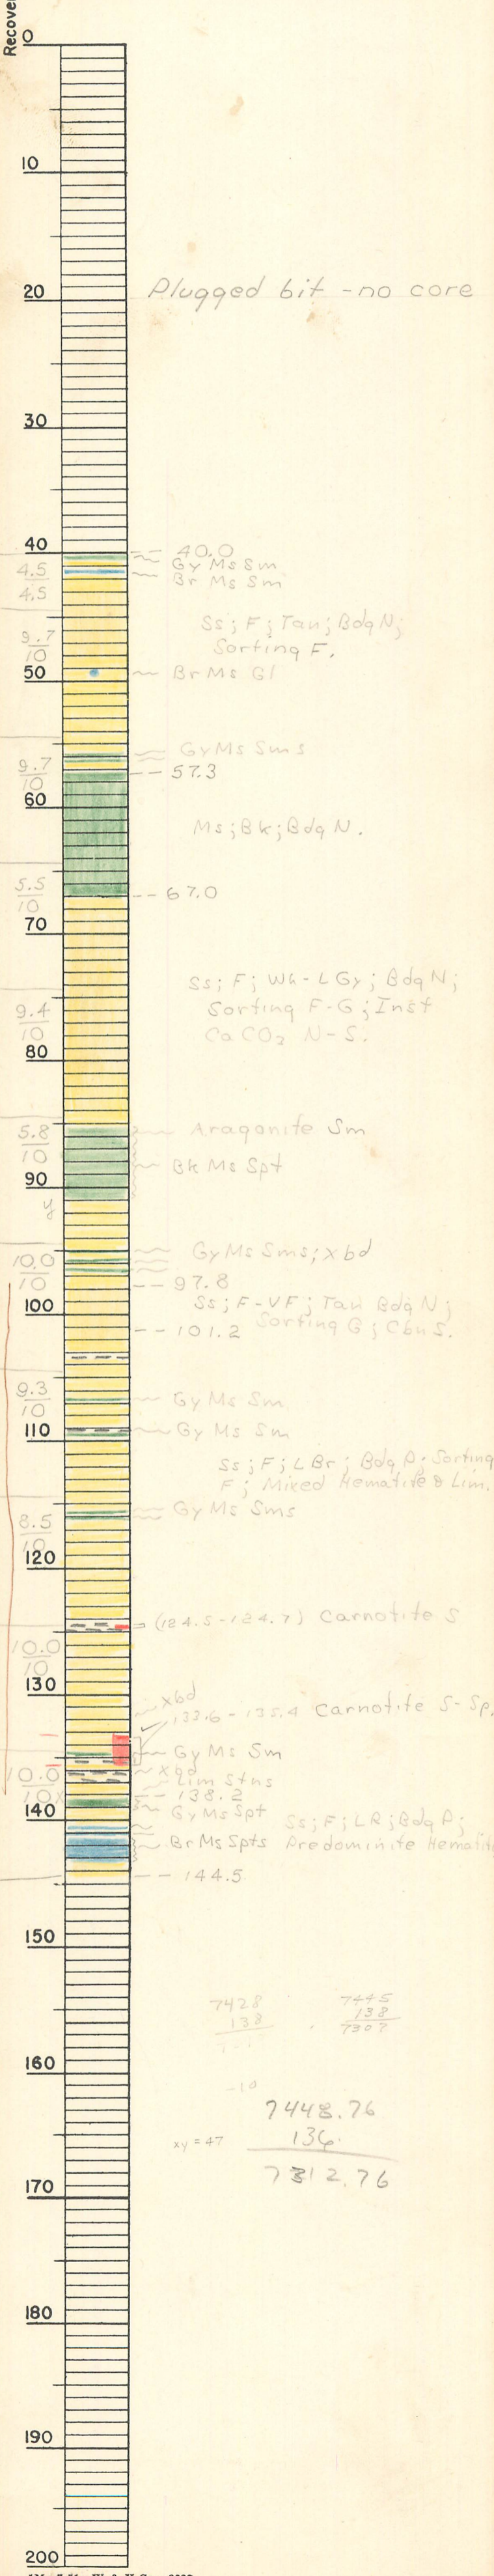 Recover
0
10
20 Plugged bit - no core
30
40
-- 40.0
Gy Ms Sm
4.5 Br Ms Sm
4.5
Ss; F; Tan; Bdg N;
9.7 Sorting F.
10
50 Br Ms Gl
Gy Ms Sms
9.7 -- 57.3
10
60
Ms; Bk; Bdg N.
5.5 -- 67.0
10
70
Ss; F; Wh-LGy; Bdg N;
9.4 Sorting F-G; Inst
10 CaCO3 N-S.
80
5.8 Aragonite Sm
10
Bk Ms Spt
90
y
10.0 Gy Ms Sms; xbd
10 -- 97.8
100 Ss; F-VF; Tan Bdg N;
-- 101.2 Sorting G; Cbn S.
9.3 Gy Ms Sm
10
110 Gy Ms Sm
Ss; F; LBr; Bdg P; Sorting
F; Mixed Hematite & Lim.
8.5 Gy Ms Sms
10
120
(124.5-124.7) Carnotite S
10.0
10
130
xbd
133.6 - 135.4 Carnotite S-Sp.
Gy Ms Sm
10.0 xbd
10x Lim Stns
-- 138.2
140 Gy Ms Spt Ss; F; LR; Bdg P;
Br Ms Spts Predominite Hemati
-- 144.5
150
7428 7445
138 138
7307
160
-10
7448.76
xy = 47 136.
7312.76
170
180
190
200